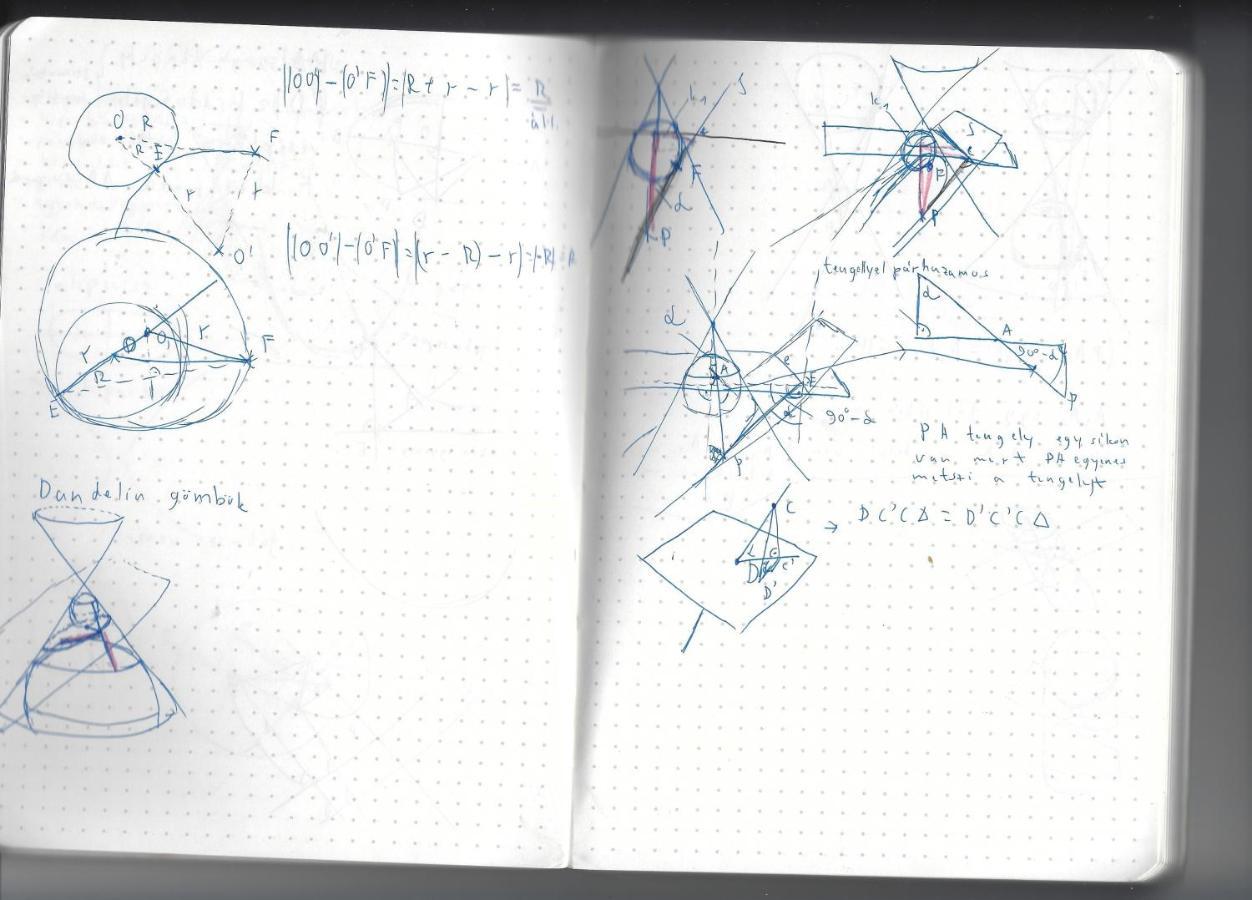 ||OO'|-|O'F||=|R+r-r|=R
áll.
O R
R E
F
r
r
O'
||OO'|-|O'F||=|(r-R)-r|=|-R|
r
O
O'
r
F
R
E
Dandelin gömbök
k₁ S
F
α
P
k₁
S
e
F
P
tengellyel párhuzamos
α
A
90°-α
P
α
A
e
E
90°-α
P
PA tengely egy síkon
van mert PA egyenes
metszi a tengelyt
C
D
C'
D'
→ DC'C△ = D'C'C△